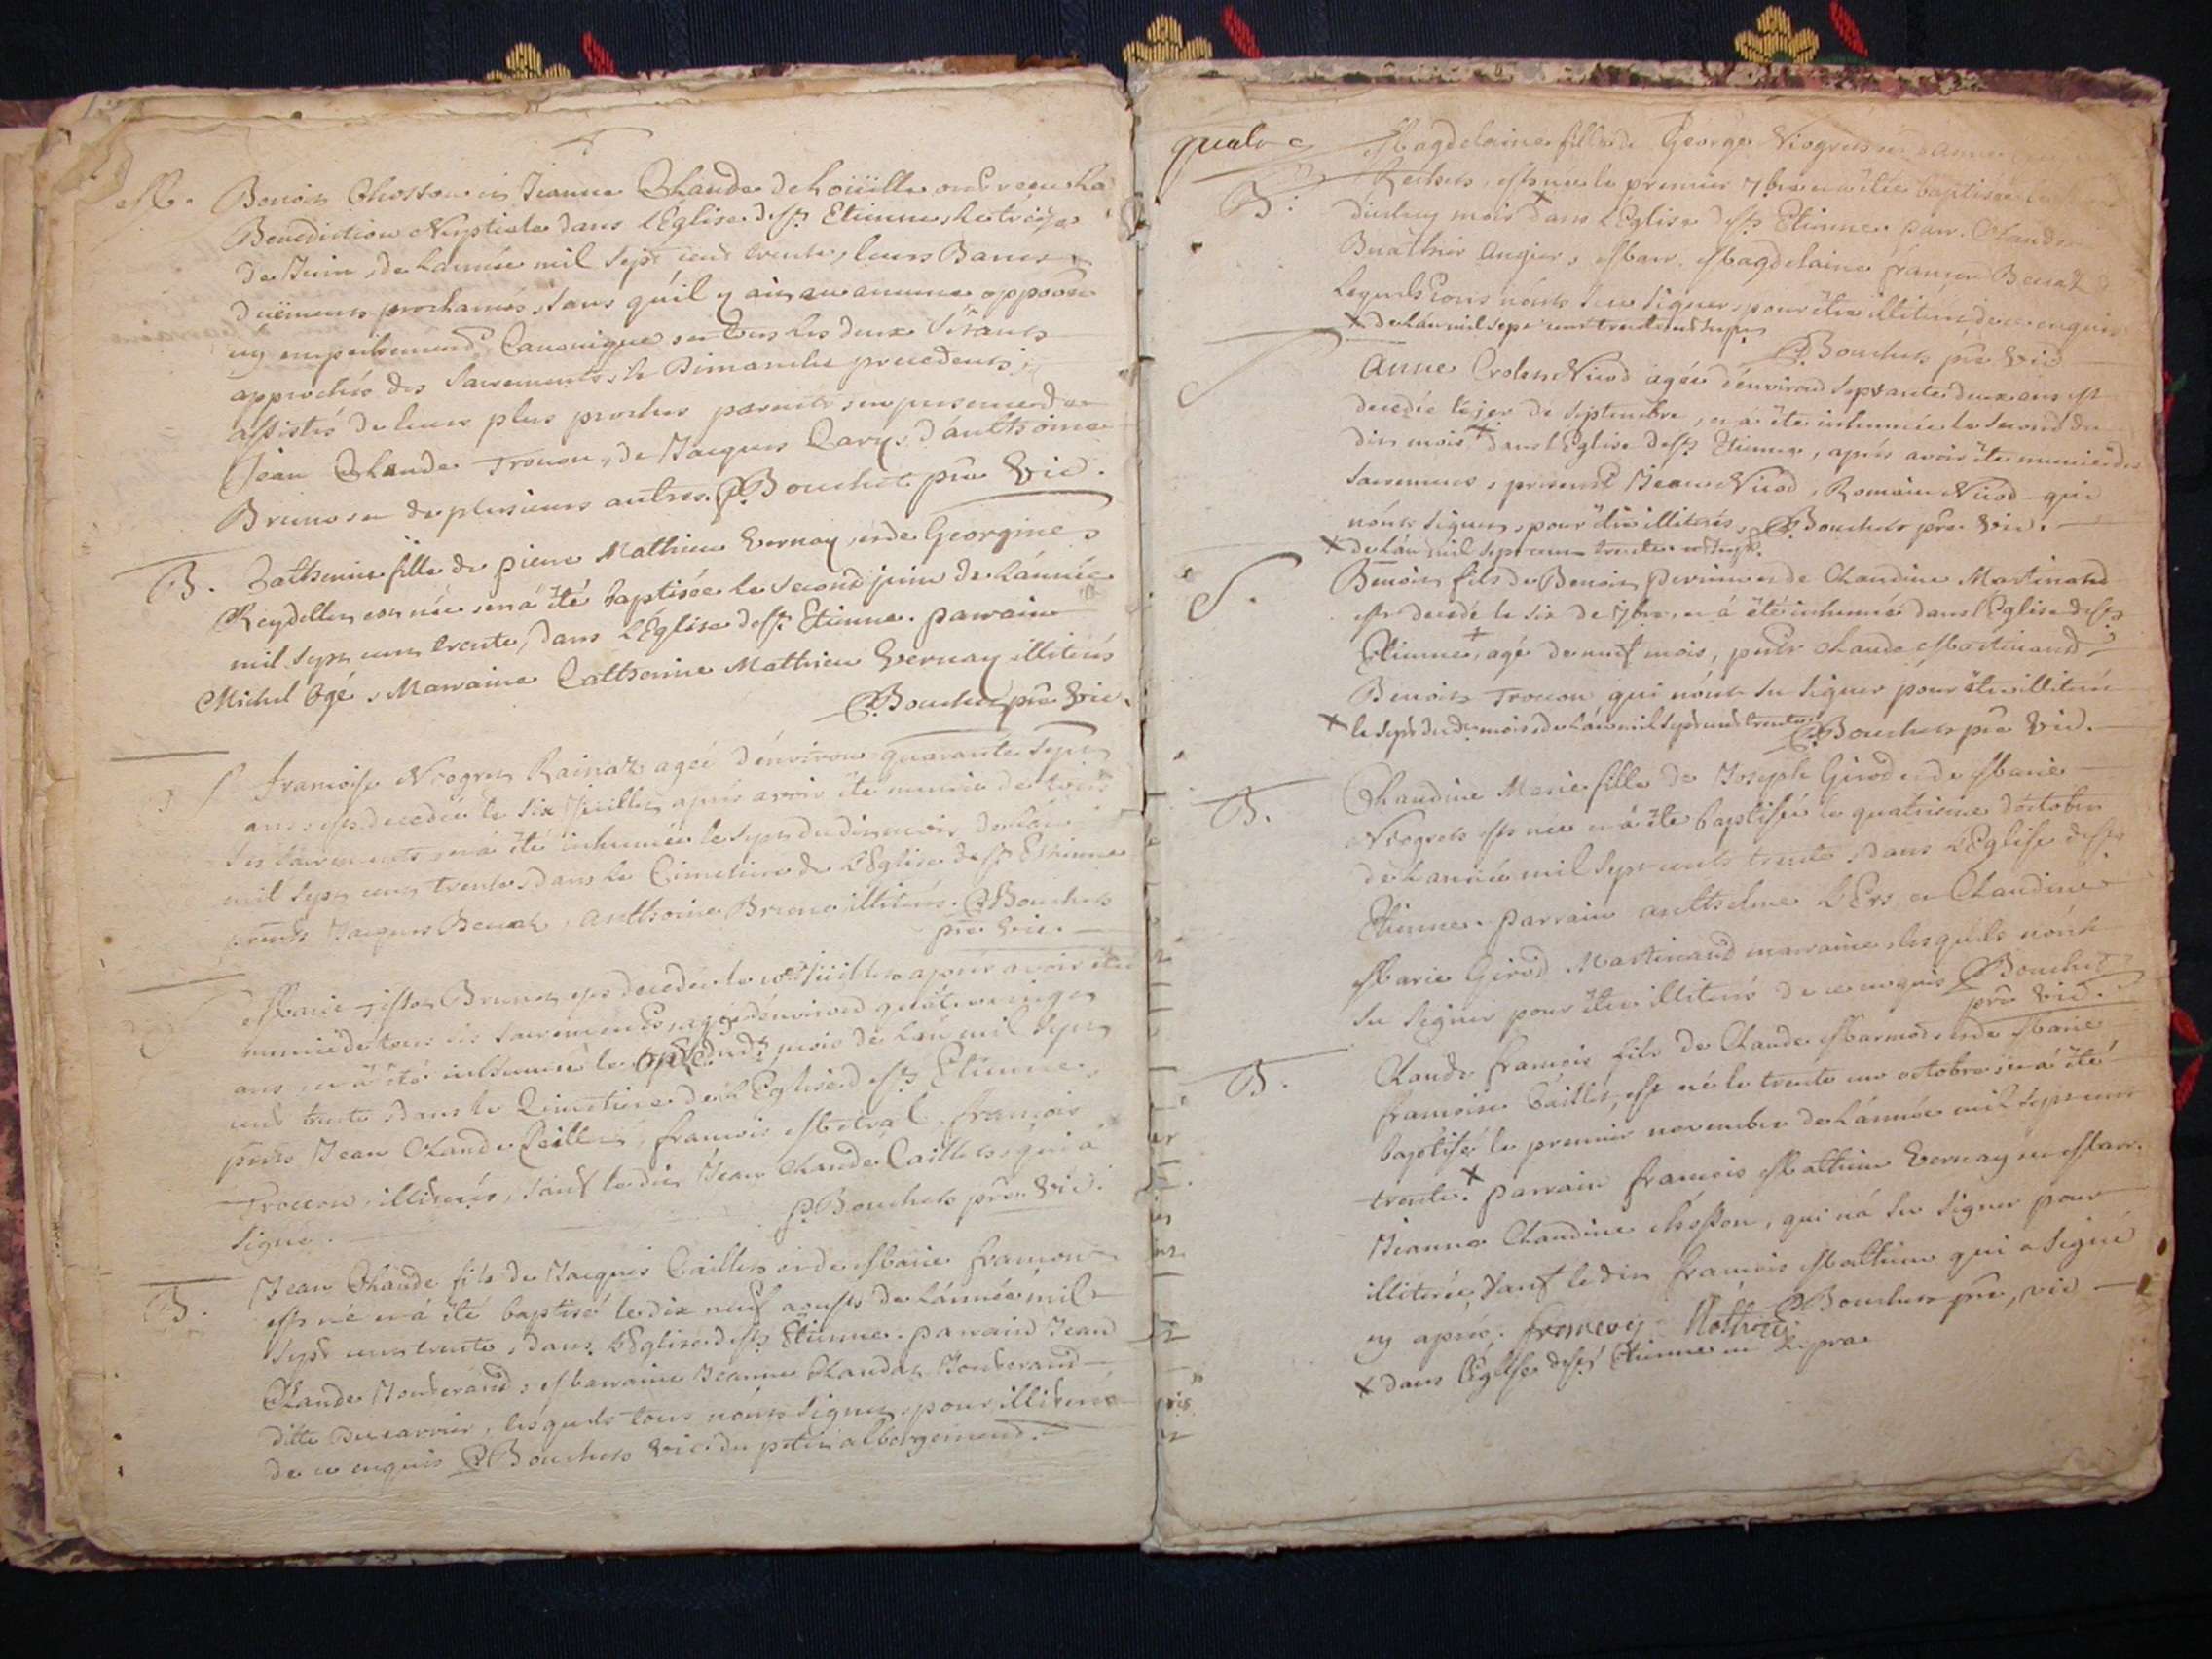 M. Benoit Chosson et Jeanne Claude dehoüille ont receu La
Benediction Nuptiale dans L'Eglise de st Etienne, Le treize
de Juin, de Lannée mil sept cent trente, leurs Bancs
düement proclamés, sans qu'il y ait eu aucune opposon
ny empechement Canonique, tous les deux s'étants
approchés des Sacrements, le Dimanche precedent,
assistés de leurs plus proches parents, en presence de
Jean Claude Trocon, de Jacques Dary, d'anthoine
Brunos et de plusieurs autres. P Bouchet pre Vic.
B. Catherine fille de pierre Mathieu Vernay, et de Georgine
Reydellet est née, et a été baptisée le second juin de Lannée
mil sept cent trente, dans L'Eglise de st Etienne. parrain
Michel Ogé, Marraine Catherine Mathieu Vernay illiterés
P Bouchet pre Vic.
S francoise Niogret Rainaz agée d'environ quarante sept
ans est decedée le six Juillet après avoir été munie de tous
ses sacrements, et a été inhumée le sept dudit mois de Lan
mil sept cent trente, dans Le Cimetiere de L'Eglise de st Etienne
pnts Jacques Beuaz, anthoine Bruno illiterés. P Bouchet
pre Vic.
S Marie Tissot Brunet est decedée le Juillet après avoir été
munie de tous les sacrements, agée d'environ quatre vingt
ans, et a été inhumée le dudt mois de Lan mil sept
cent trente, dans le Cimetiere de L'Eglise de st Etienne,
pnts Jean Claude Caillet, francois Metral, francois
Trocon, illiterés, sauf ledit Jean Claude Caillet, qui a
signé. P. Bouchet pre. Vic.
B. Jean Claude fils de Jacques Caillet et de Marie francon
est né et a été baptisé le dix neuf aoust de Lannée mil
sept cent trente, dans L'Eglise de st Etienne. parrain Jean
Claude Jouverand, Marraine Jeanne Claudaz Jouverand
ditte Ducarrier, lesquels tous n'ont signez, pour illiterés
de ce enquis P Bouchet Vic. du petit albergement.
quatre
B. Magdelaine fille de George Niogret et d'anne
Rechet, est née le premier 7bre et a été baptisée le
dudit mois X dans L'Eglise de st Etienne parr. Claude
Buathier augier, Marr. Magdelaine françon Beuaz
Lequels tous n'ont sceu signer, pour être illiterés de ce enquis
X de Lan mil sept cent trente
P Bouchet pre Vic
S Anne Crolet Nicod agée d'environ septante deux ans est
decedée le jer de septembre, et a été inhumée le second du
dit mois X dans L'Eglise de st Etienne, après avoir été munie des
sacremens, present Jean Nicod, Romain Nicod qui
n'ont signer, pour être illiterés, P Bouchet pre. Vic.
X de Lan mil sept cent trente
S. Benoit fils de Benoit Perrin et de Claudine Martinand
est decedé le six de 7bre, et a été inhumé dans L'Eglise de st
Etienne, X agé de neuf mois, pnts Claude Martinand
Benoit Trocon qui n'ont su signer pour être illiterés
X le sept dudt mois, de Lan mil sept cent trente P Bouchet pre Vic.
B. Claudine Marie fille de Joseph Girod et de Marie
Niogret est née et a été baptisée le quatrieme d'octobre
de Lannée mil sept cents trente, dans L'Eglise de st
Etienne. Parrain anthelme L'Ers et Claudine
Marie Girod Martinand marraine, lesquels n'ont
su signer pour être illiterés de ce enquis P Bouchet
pre Vic.
B. Claude francois fils de Claude Marmod et de Marie
francoise Caillet, est né le trente un octobre et a été
baptisé le premier novembre de Lannée mil sept cent
trente. X parrain francois Mathieu Vernay et Marr.
Jeanne Claudine chosson, qui n'a su signer pour
illiterée, sauf ledit francois Mathieu qui a signé
cy après. francois Mathieu P Bouchet pre, vic
X dans l'Eglise de st Etienne